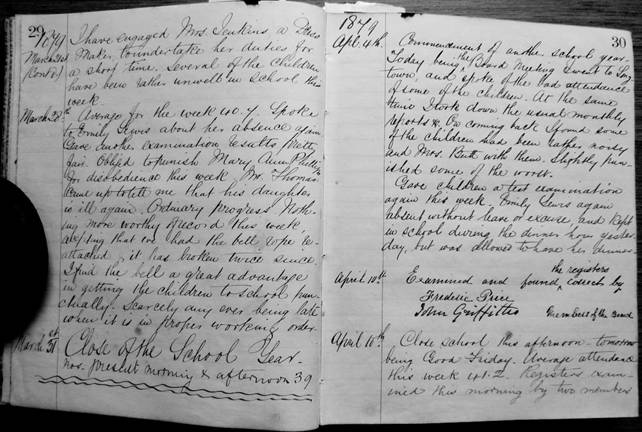 29
1879
I have engaged Mrs. Jenkins a Dress
March 21st
Maker, to undertake her duties for
(Contd)
a short time. Several of the children
have been rather unwell in School this
week.
March 28th
Average for the week 40.7. Spoke
to Emily Lewis about her absence again
Gave another examination results pretty
fair. Obliged to punish Mary Ann
for disobedience this week. Mr. Thomas
came up to tell me that his daughter
is ill again. Ordinary progress Noth-
ing more worthy of record this week
that we had the bell rope re-
attached, it has broken twice since.
I find the bell a great advantage
in getting the children to school pun-
ctually. Scarcely any ever being late
when it is in proper working order.
March 31st
Close of the School Year.
nos. present morning & afternoon 39
1879
30
Apl. 4th.
Commencement of another school year.
Today being the Board Meeting I went to
town, and spoke of the bad attendance
of some of the children. At the same
time I took down the usual monthly
reports &c. On coming back I found some
of the children had been rather noisy
and Mrs. with them. Slightly pun-
ished some of the worst.
Gave children a test examination
again this week. Emily Lewis again
absent without leave or excuse, and kept
in school during the dinner hour yester-
day, but was allowed to have her dinner.
April 10th
the registers
Examined and found correct by
Frederic
John Griffiths
Members of the Board
Close school this afternoon - tomorrow
being Good Friday. Average attendance
this week 41.2. Registers exam-
ined this morning by two members